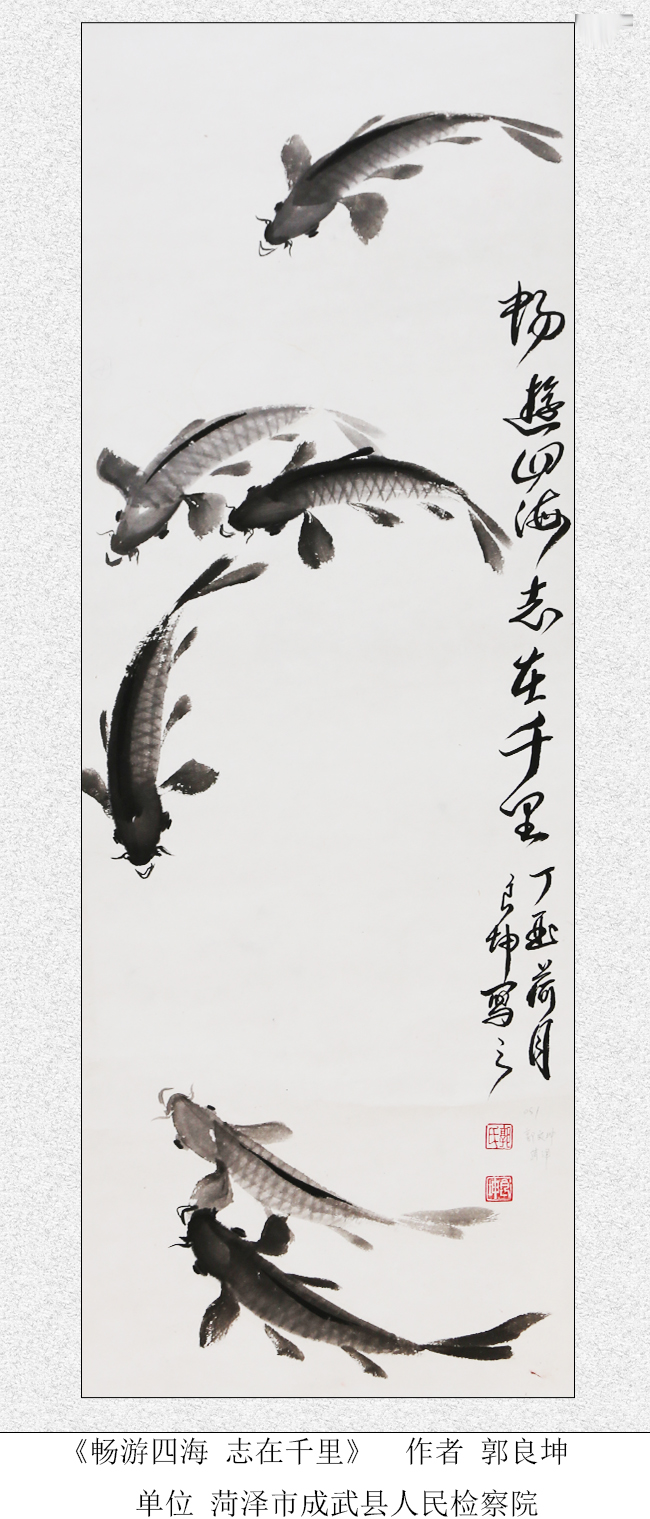 畅游四海志在千里
丁酉荷月
良坤写之
郭氏
良坤
《畅游四海 志在千里》 作者 郭良坤
单位 菏泽市成武县人民检察院